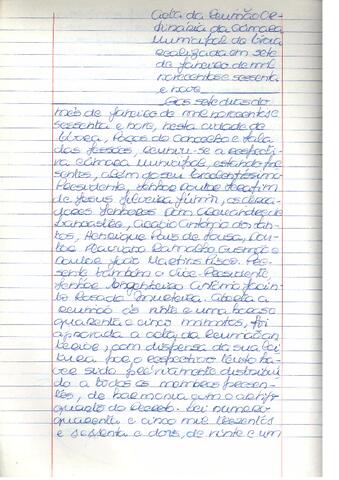 Acta da Reunião Or-
dinária da Câmara
Municipal de Évora
realizada em sete
de Janeiro de mil
novecentos e sessenta
e nove
Aos sete dias do
mês de Janeiro de mil novecentos e
sessenta e nove, nesta cidade de
Évora, Paços do Concelho e Sala
das Sessões, reuniu-se a respecti-
va Câmara Municipal, estando pre-
sentes, além do seu Excelentíssimo
Presidente, Senhor Doutor Serafim
de Jesus Silveira Júnior, os Verea-
dores Senhores Dom Alexandre de
Lancastre, Acácio António dos San-
tos, Henrique Pais de Sousa, Dou-
tor Ramalho e
Doutor João Pre-
sente também o Vice-Presidente,
Senhor Engenheiro António Jacin-
to Rosado Aberta a
reunião às vinte e uma horas e
quarenta e cinco minutos, foi
aprovada a acta da reunião an-
terior, com dispensa da sua lei
tura por o respectivo texto ha-
ver sido previamente distribuí
do a todos os membros presen-
tes, de harmonia com o artigo
quarto do Decreto-Lei número
quarenta e cinco mil trezentos
e sessenta e dois, de vinte e um